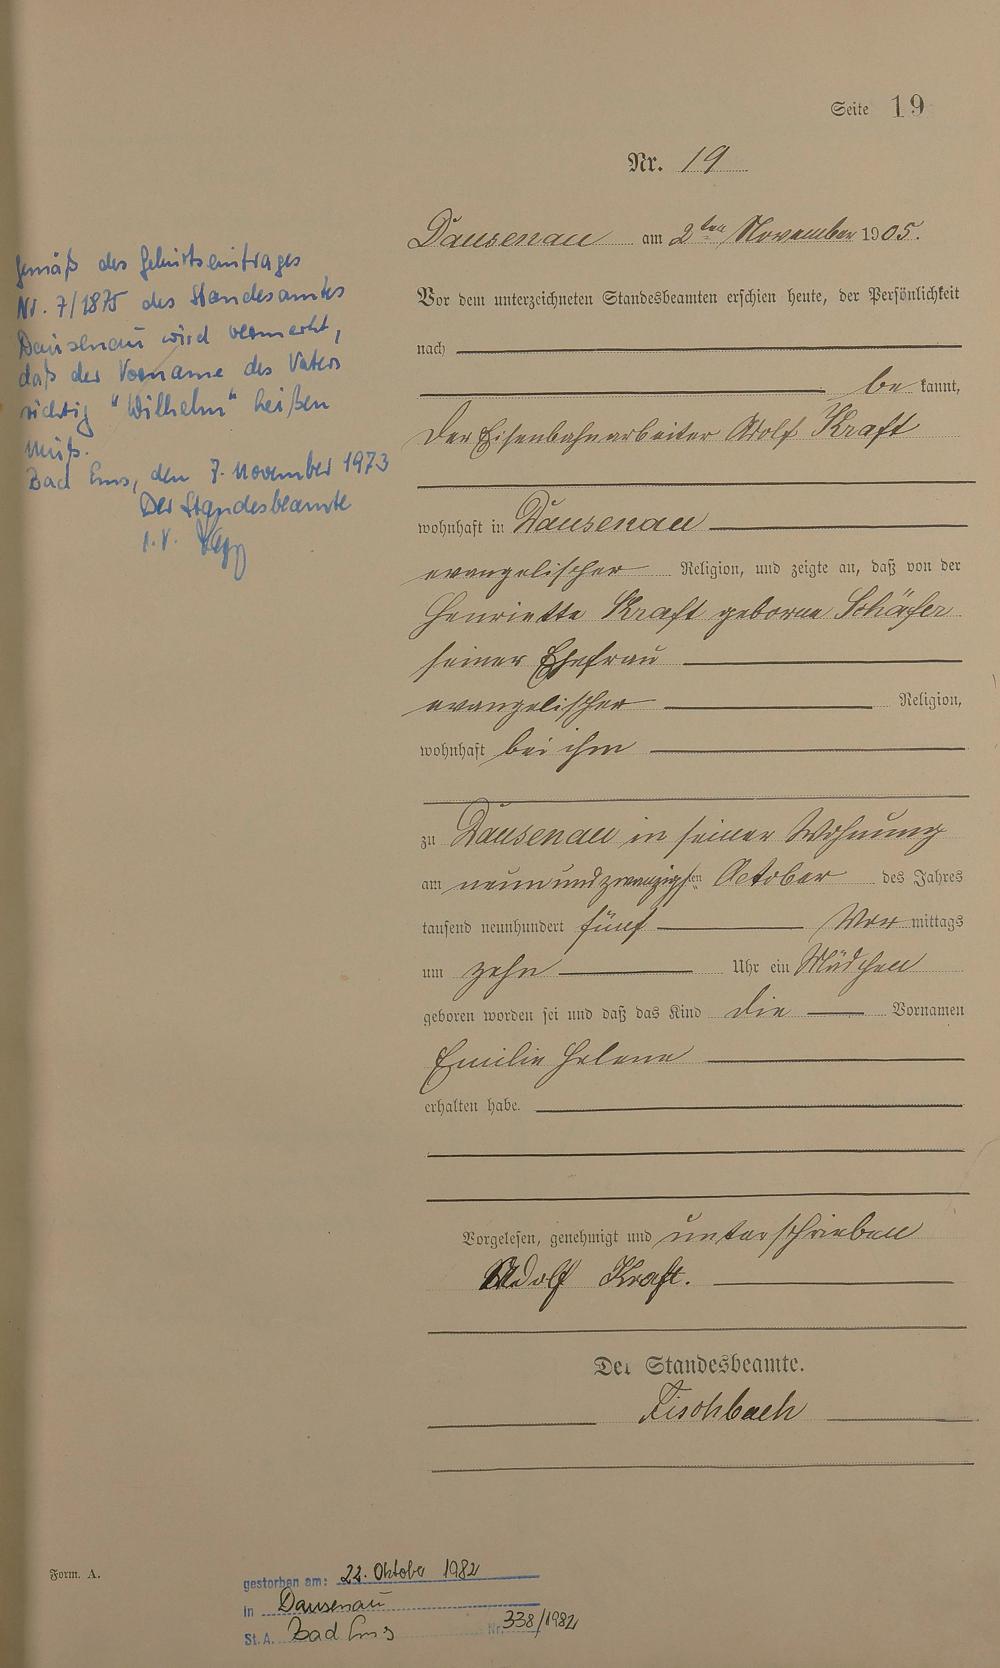 Seite 19
Nr. 19
Dausenau am 2ten November 1905.
Vor dem unterzeichneten Standesbeamten erschien heute, der Persönlichkeit
nach
be kannt,
der Eisenbahnarbeiter Adolf Kraft
wohnhaft in Dausenau
evangelischer Religion, und zeigte an, daß von der
Henriette Kraft geborne Schäfer
seiner Ehefrau
evangelischer Religion,
wohnhaft bei ihm
zu Dausenau in seiner Wohnung
am neunundzwanzigsten October des Jahres
tausend neunhundert fünf Vor mittags
um zehn Uhr ein Mädchen
geboren worden sei und daß das Kind die Vornamen
Emilie Helene
erhalten habe.
Vorgelesen, genehmigt und unterschrieben
Adolf Kraft.
Der Standesbeamte.
Fischbach
gemäß des Geburtseintrages
Nr. 7/1875 des Standesamtes
Dausenau wird vermerkt,
daß der Vorname des Vaters
richtig "Wilhelm" heißen
muß.
Bad Ems, den 7. November 1973
Der Standesbeamte
i.V.
Form. A.
gestorben am: 22. Oktober 1982
in Dausenau
St.A. Bad Ems Nr. 338/1982